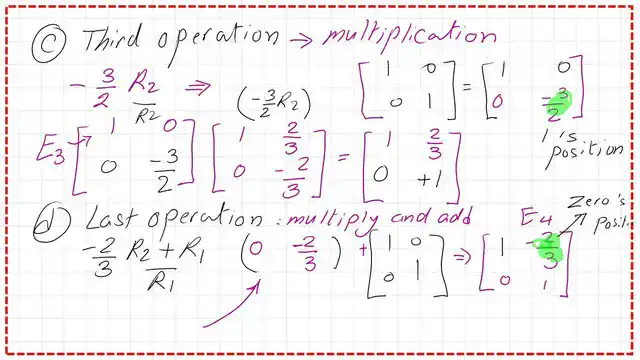 (c) Third operation → multiplication
-3/2 R2 / R2 ⇒ (-3/2 R2) [1 0; 0 1] = [1 0; 0 -3/2]
1's position
E3 → [1 0; 0 -3/2] [1 2/3; 0 -2/3] = [1 2/3; 0 +1]
(d) Last operation : multiply and add E4 Zero's
-2/3 R2 + R1 / R1 (0 -2/3) + [1 0; 0 1] ⇒ [1 -2/3; 0 1]